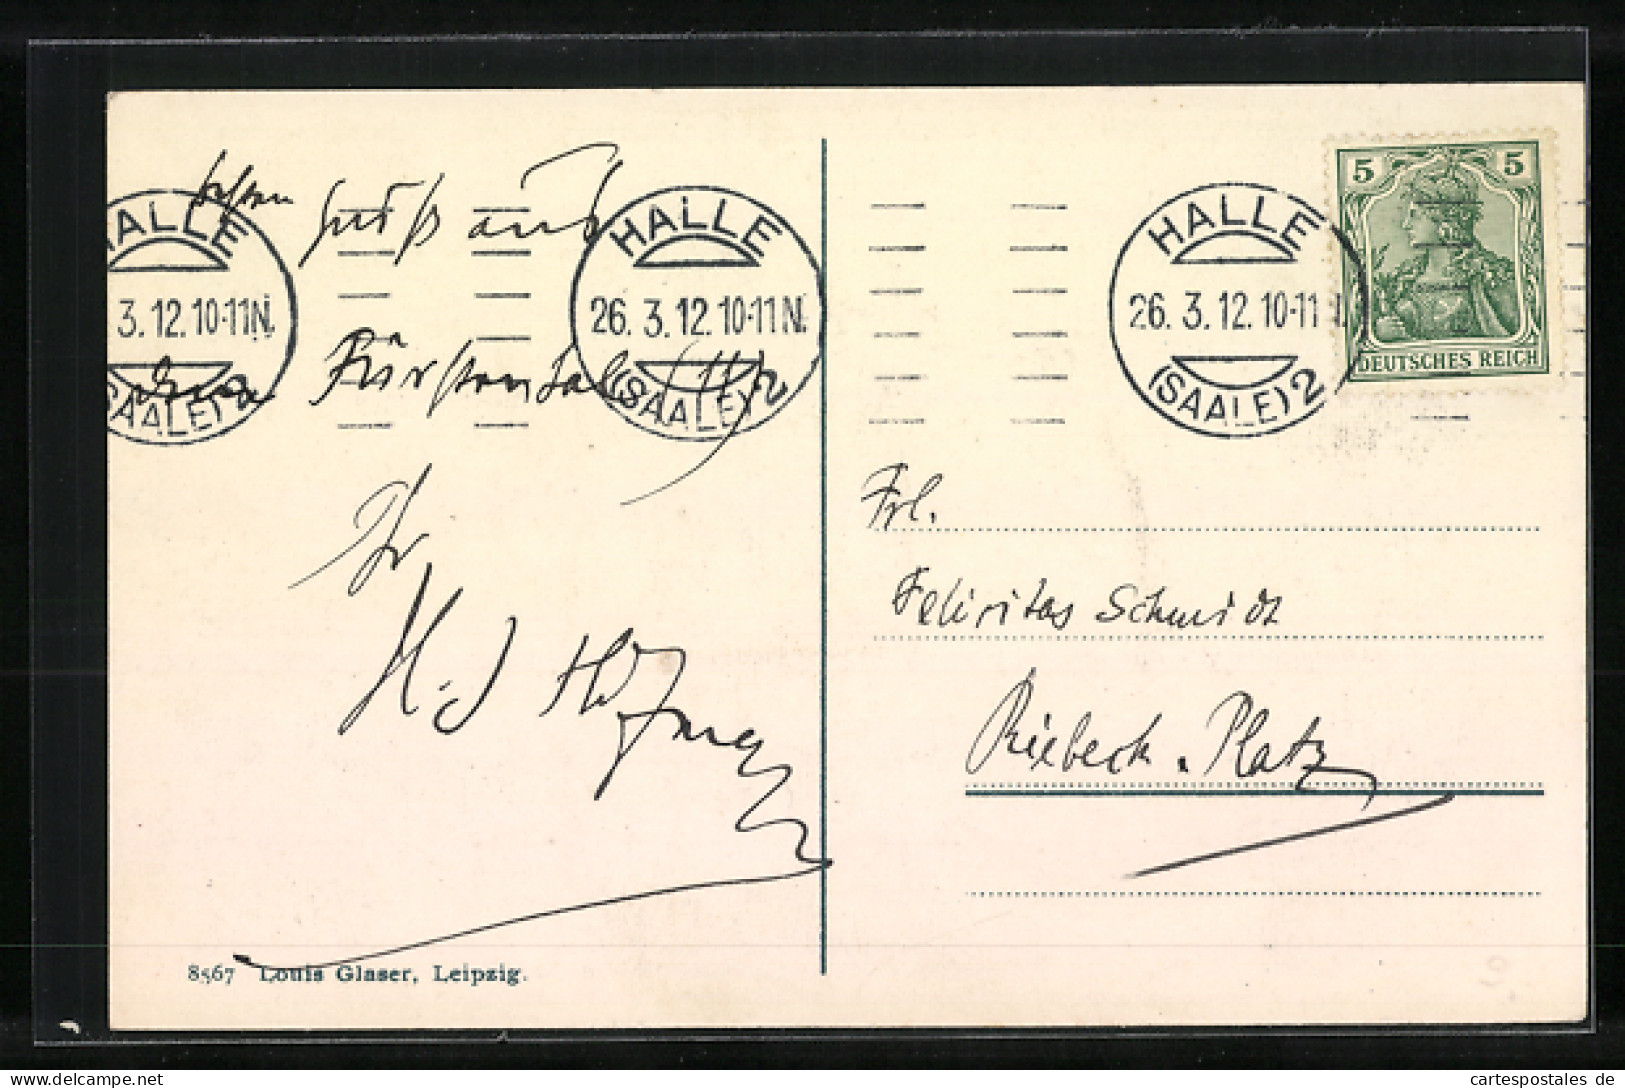 Gruß aus
HALLE
3.12.10-11N.
(SAALE) 2
HALLE
26.3.12.10-11N.
(SAALE) 2
Fürstental (!!)
Ihr
8567 Louis Glaser, Leipzig.
HALLE
26.3.12.10-11
(SAALE) 2
5 5
DEUTSCHES REICH
Frl.
Felicitas Schmidt
Riebeck-Platz
cartespostales de